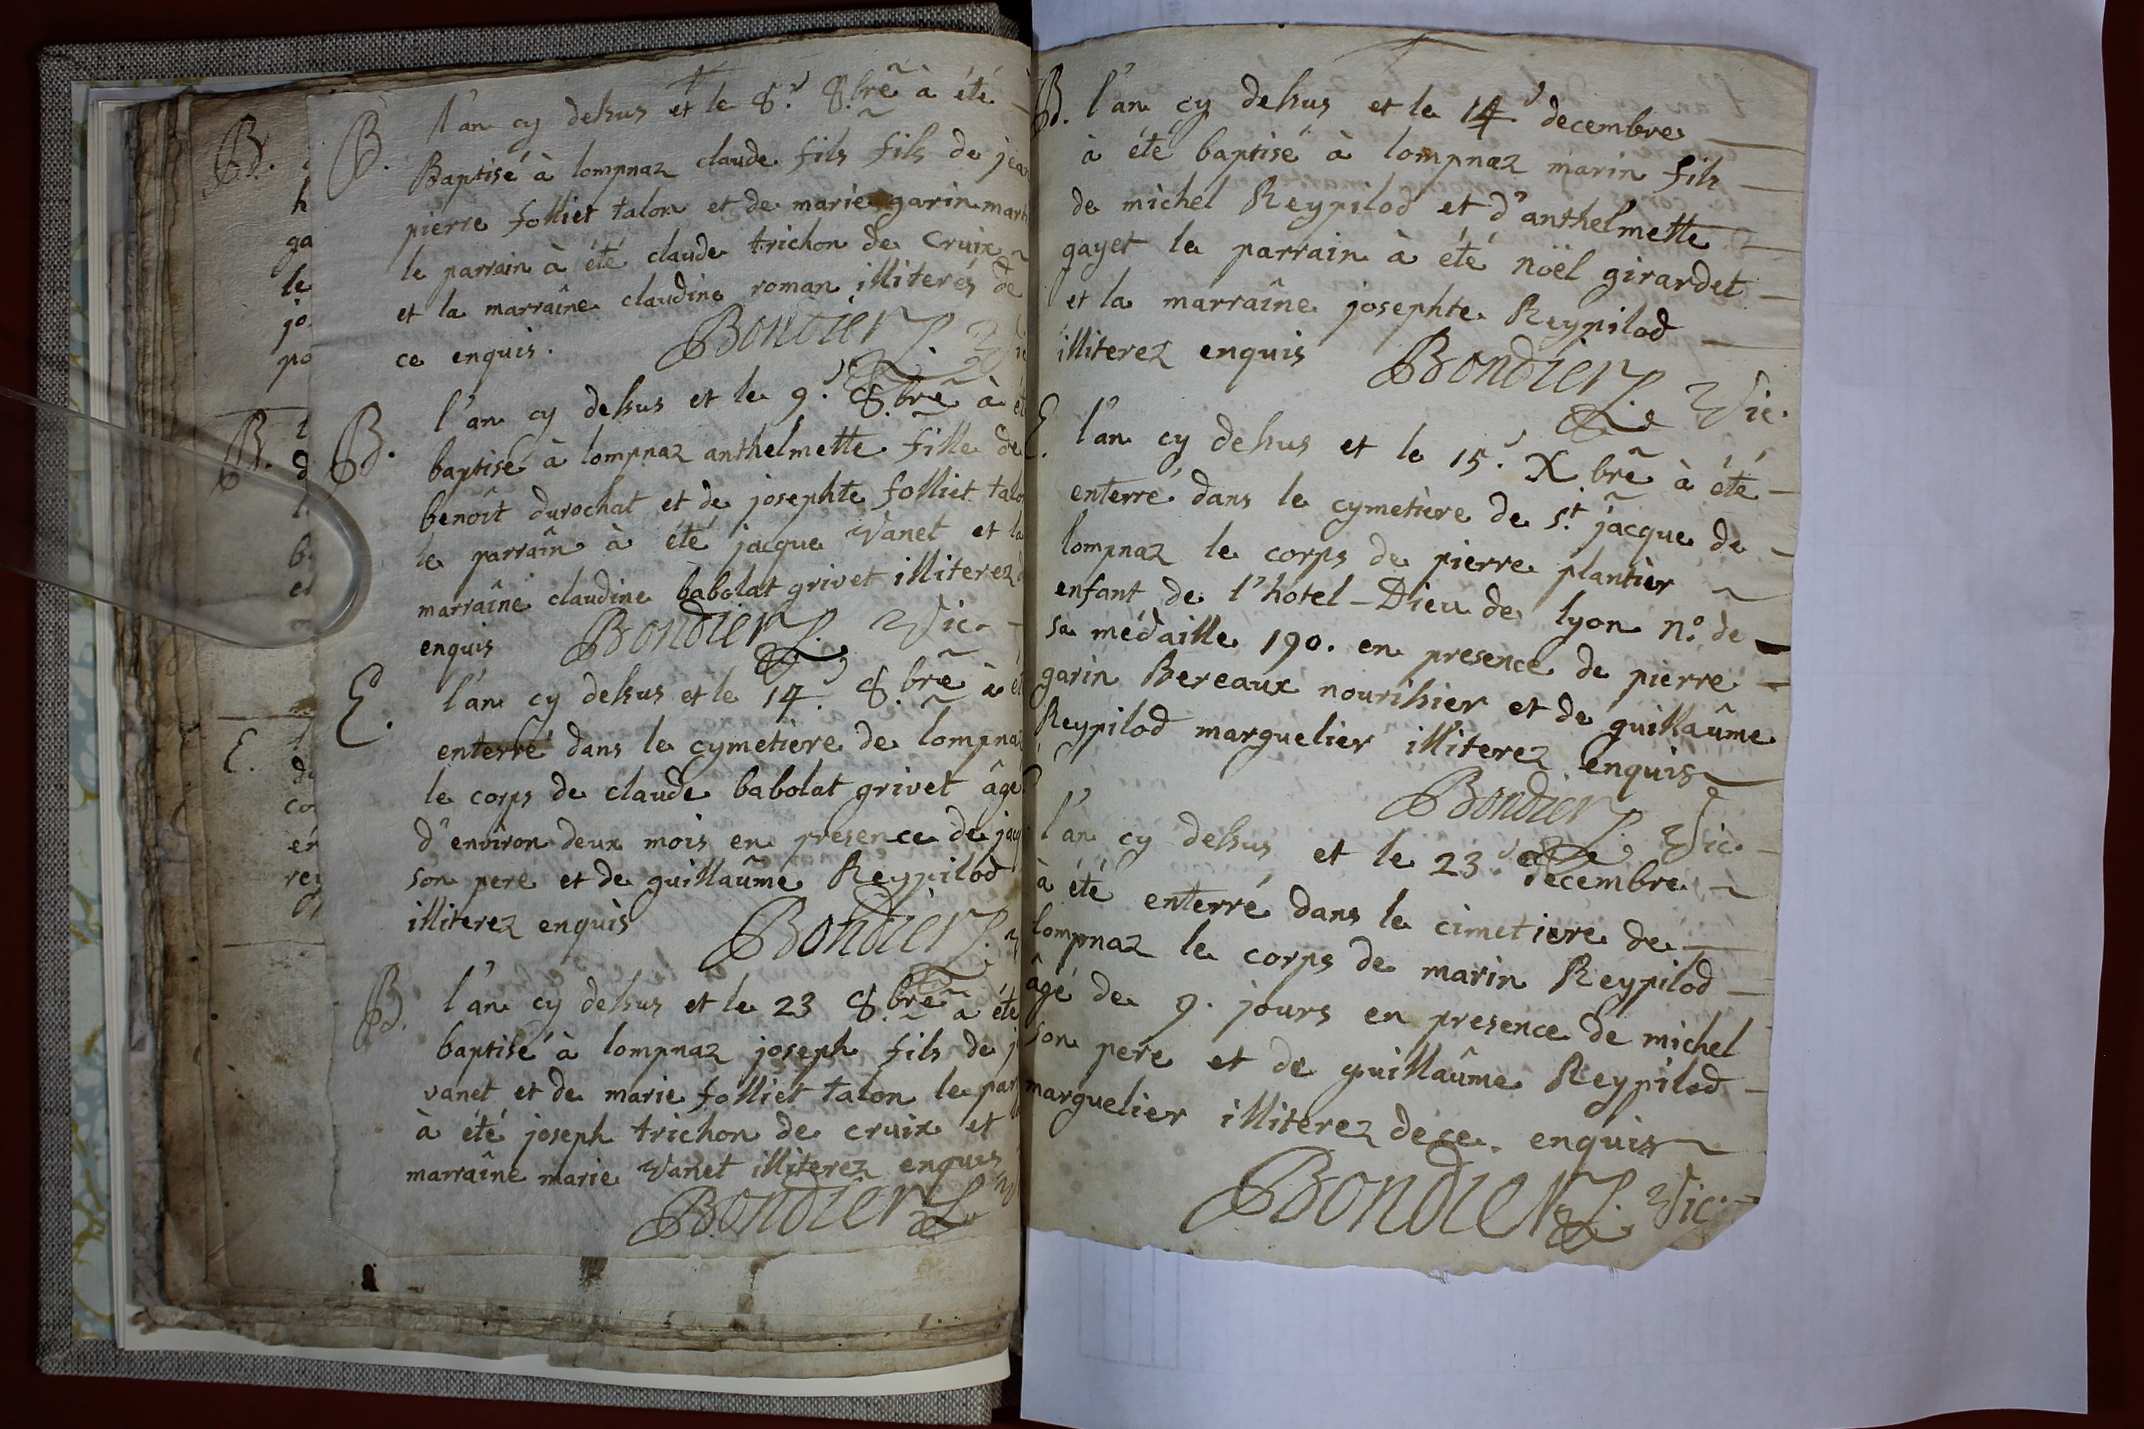 B.
h
ga
le
jo
po
B.
d
E.
co
B. l'an cy dessus et le 8.e 8.bre à été
Baptisé à lompnaz claude fils fils de jea
pierre folliet talon et de marie garin mart
le parrain à été claude trichon de Cruix
et la marraîne claudine roman illiterés de
ce enquis. Bondier
B. l'an cy dessus et le 9.e 8.bre à ét
baptisé à lompnaz anthelmette fille de
benoît durochat et de josephte folliet talo
le parraîn à été jacque Vanet et la
marraîne claudine babolat grivet illiterez
enquis Bondier Vic.
E. l'an cy dessus et le 14.e 8.bre à ét
enterré dans le cymetiere de lompnaz
le corps de claude babolat grivet âgé
d'environ deux mois en presence de jacq
son pere et de guillaûme Reypilod
illiterez enquis Bondier
B. l'an cy dessus et le 23 8.bre a été
baptisé à lompnaz joseph fils de j
vanet et de marie folliet talon le par
à été joseph trichon de cruix et
marraîne marie Vanet illiterez enquis
Bondier
B. l'an cy dessus et le 14.e decembre
à été baptisé à lompnaz marin fils
de michel Reypilod et d'anthelmette
gayet le parrain à été noël girardet
et la marraîne josephte Reypilod
illiterez enquis Bondier Vic.
E. l'an cy dessus et le 15.e X.bre à été
enterré dans le cymetière de S.t jacque de
lompnaz le corps de pierre plantier
enfant de l'hotel-Dieu de lyon n.o de
sa médaille 190. en presence de pierre
garin Bereaux nourissier et de guillaûme
Reypilod marguelier illiterez enquis
Bondier Vic.
l'an cy dessus et le 23.e decembre
à été enterré dans le cimetiere de
lompnaz le corps de marin Reypilod
âgé de 9. jours en presence de michel
son pere et de guillaûme Reypilod
marguelier illiterez de ce enquis
Bondier Vic.